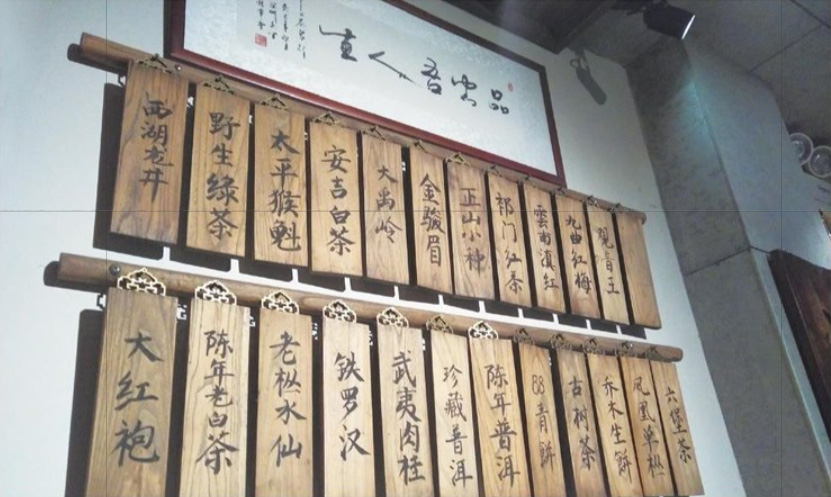 品
吾人
西湖龙井
野生绿茶
太平猴魁
安吉白茶
大禹岭
金骏眉
正山小种
祁门红茶
雲南滇红
九曲红梅
观音王
大红袍
陈年老白茶
老枞水仙
铁罗汉
武夷肉桂
珍藏普洱
陈年普洱
88青餅
古树茶
乔木生餅
凤凰单枞
六堡茶